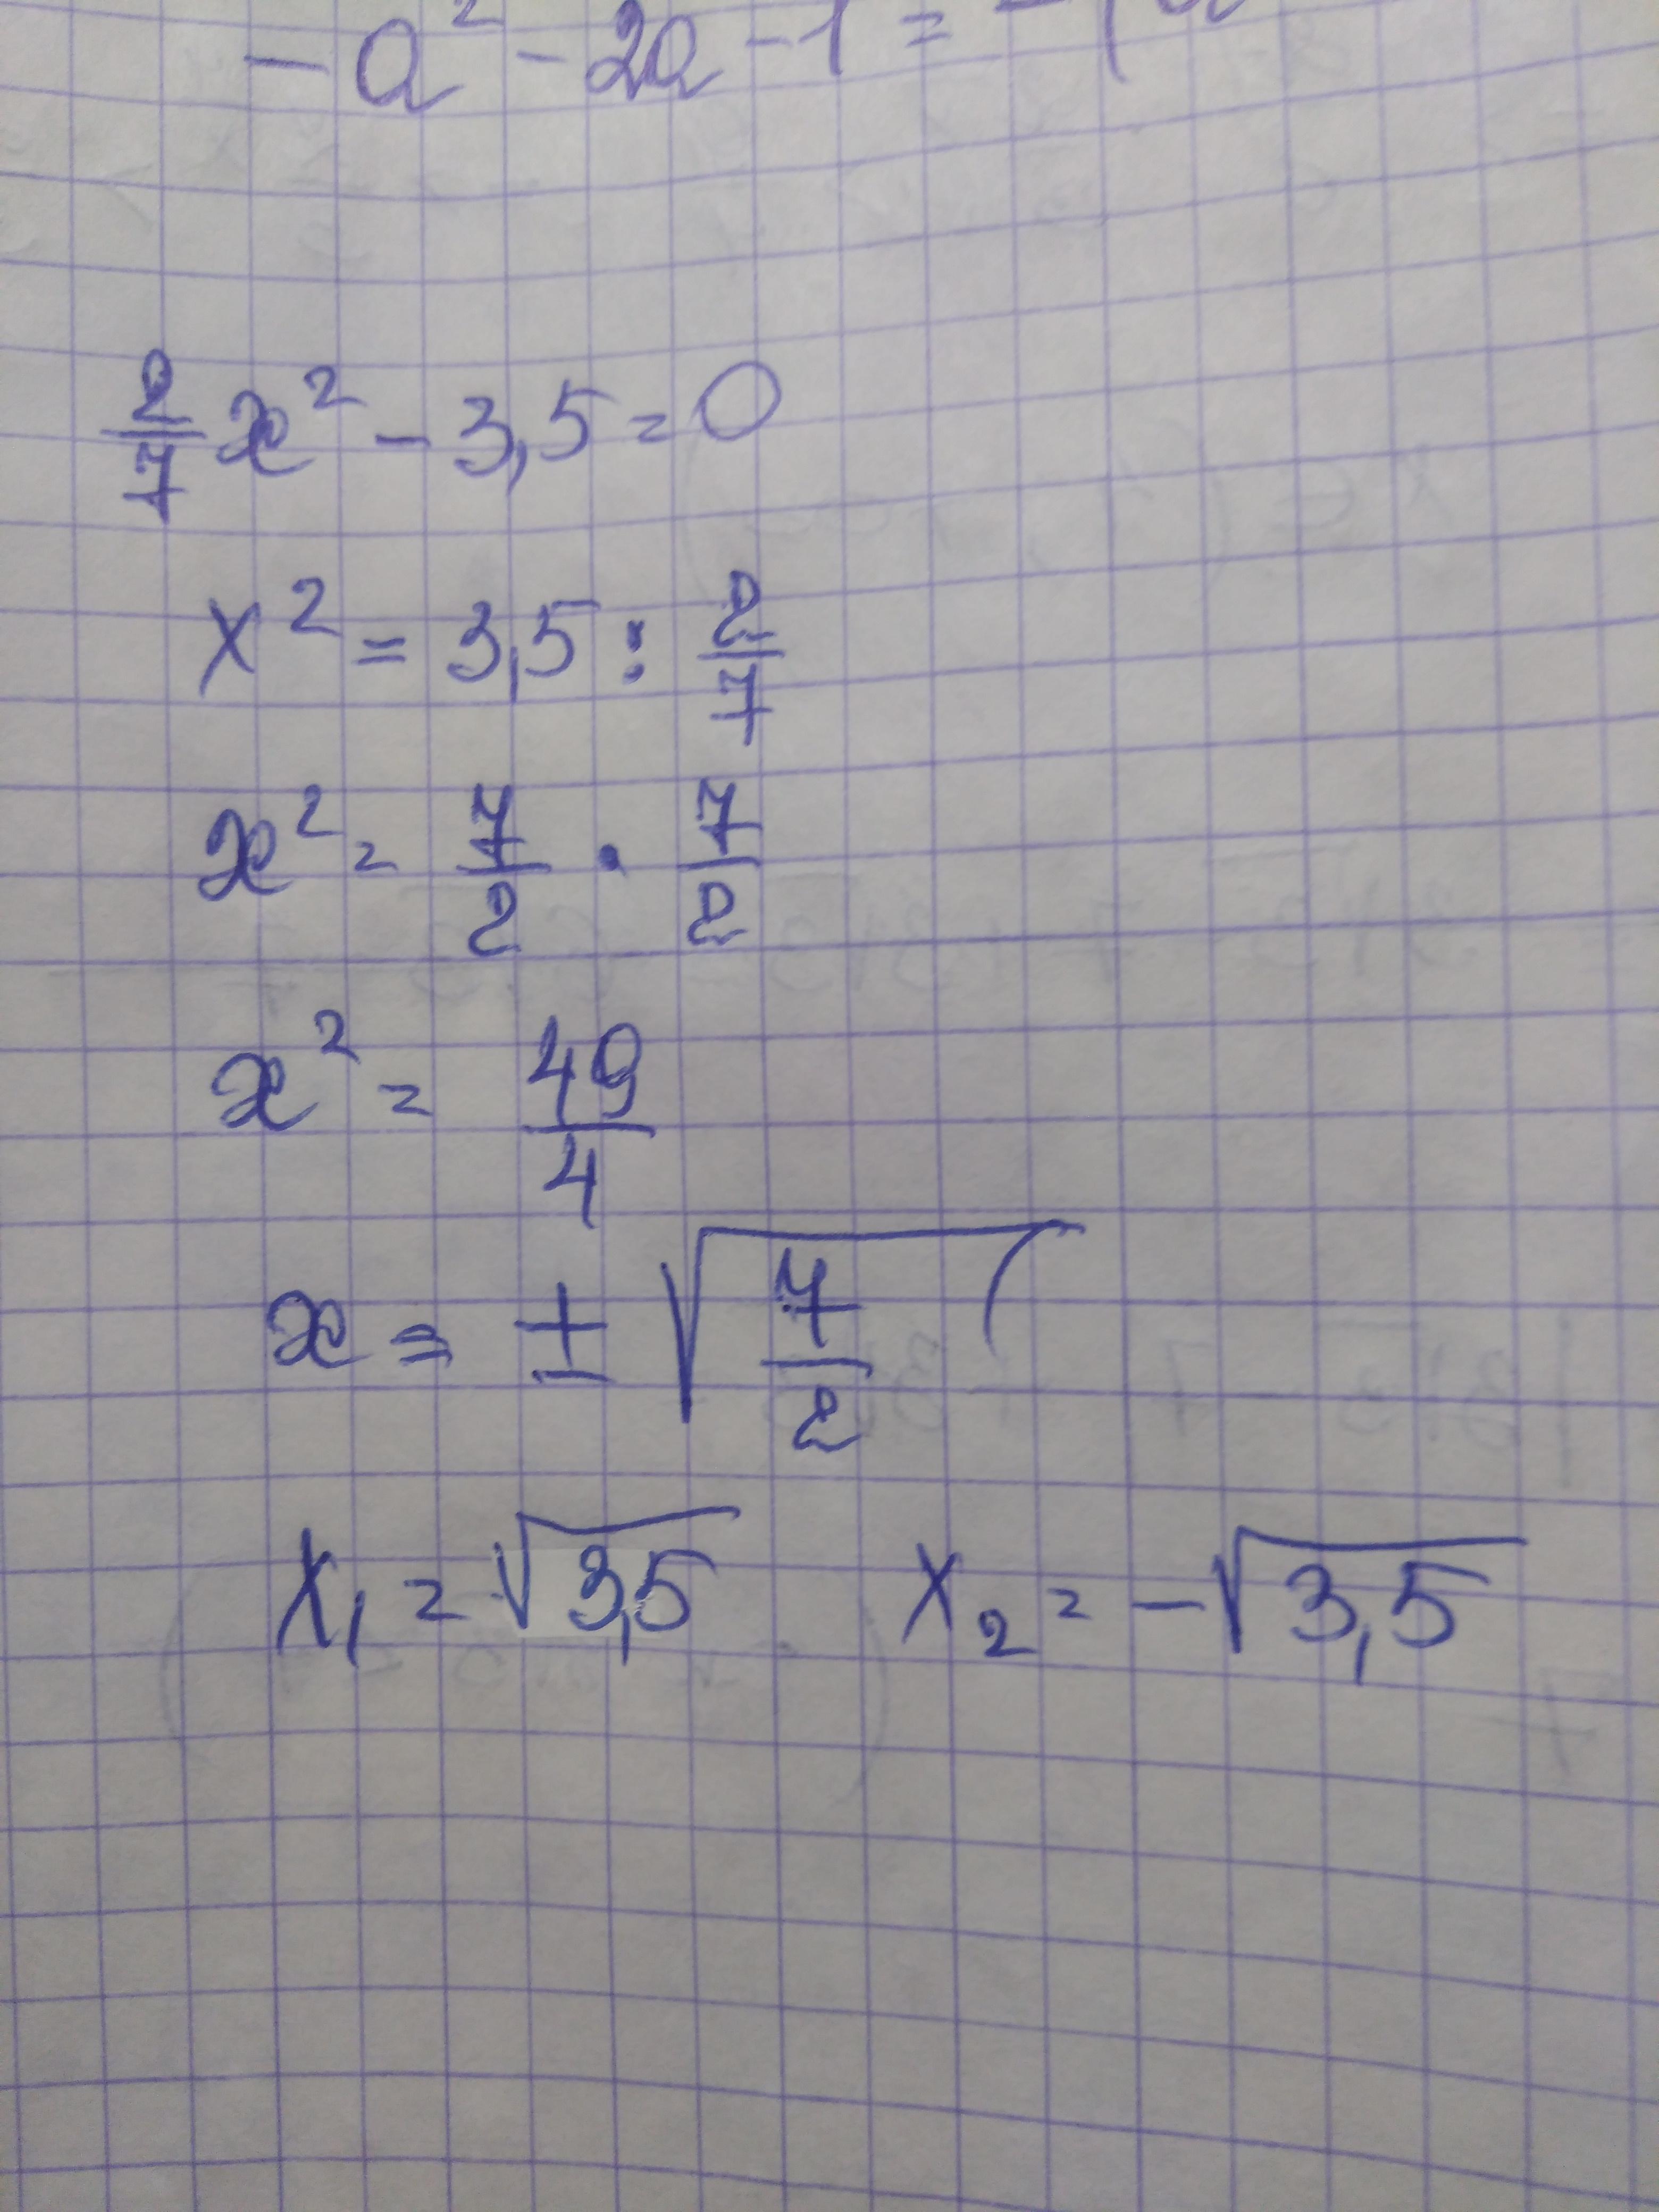 -a² - 2a - 1 = -
2/7 x² - 3,5 = 0
x² = 3,5 : 2/7
x² = 7/2 · 7/2
x² = 49/4
x = ± √(7/2)
x₁ = √3,5 x₂ = -√3,5